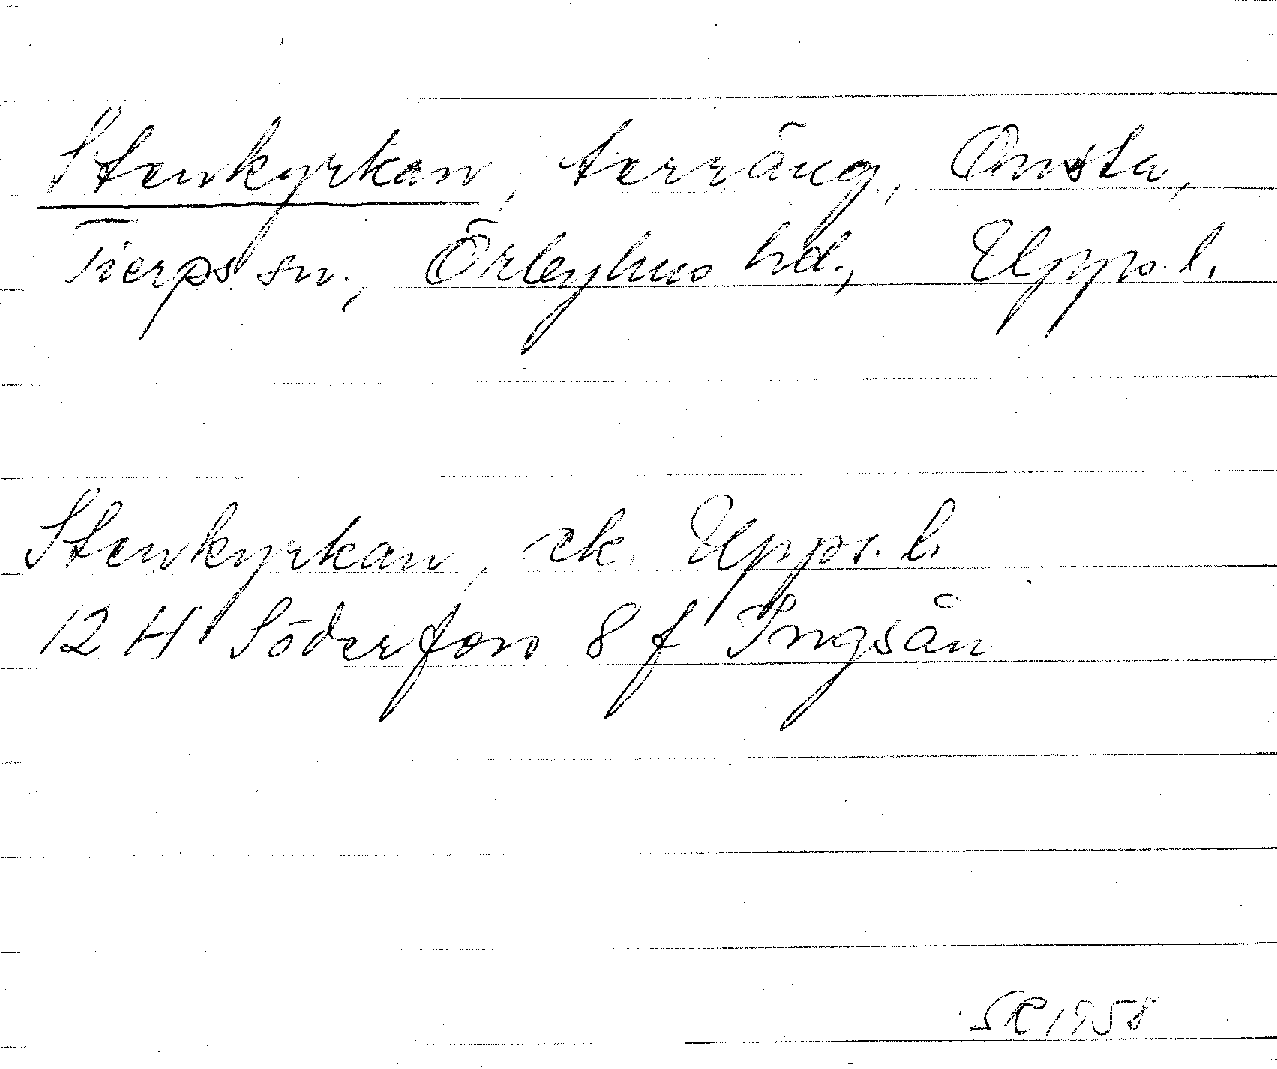 Stenkyrkan, terräng, Onsta,
Tierps sn., Örbyhus hd., Upps.l.
Stenkyrkan, ek. Upps.l.
12 H Söderfors 8 f Ingsån
SR 1958